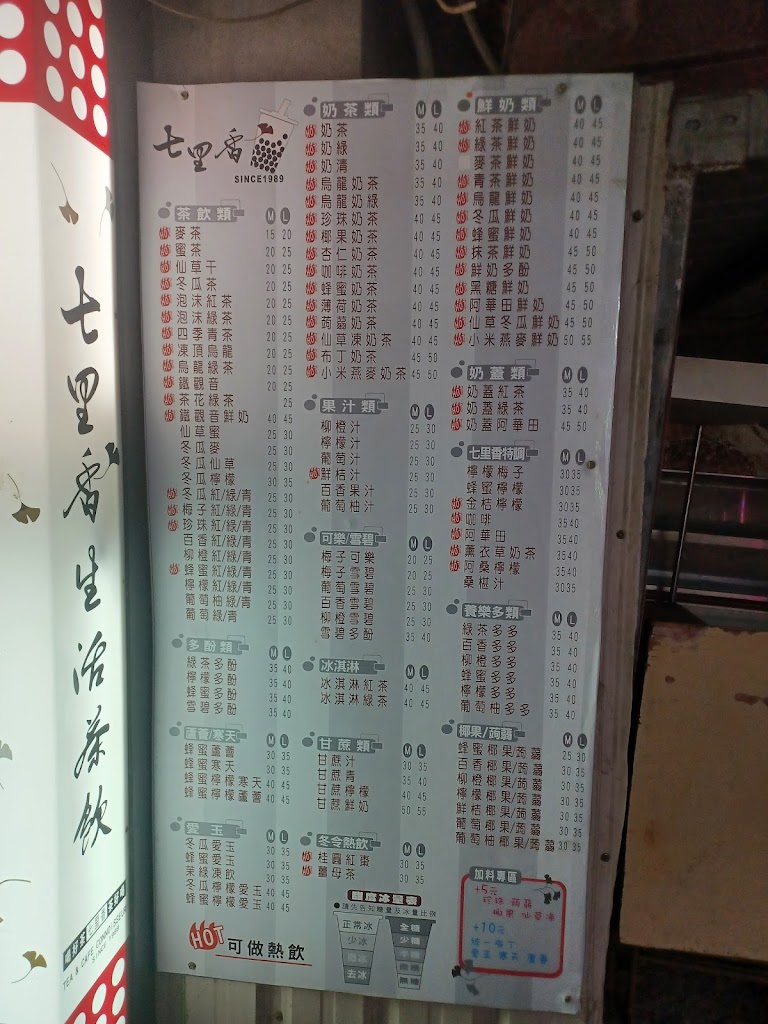 七里香生活茶飲
七里香
SINCE1989
茶飲類 M L
麥茶 15 20
蜜茶 20 25
仙草干 20 25
冬瓜茶 20 25
泡沫紅茶 20 25
泡沫綠茶 20 25
四季青茶 20 25
凍頂烏龍 20 25
烏龍綠茶 20 25
鐵觀音 20 25
茶花綠茶 25
鐵觀音鮮奶 40 45
仙草蜜 25 30
冬瓜麥 25 30
冬瓜仙草 25 30
冬瓜檸檬 30 35
冬瓜紅/綠/青 25 30
梅子紅/綠/青 25 30
珍珠紅/綠/青 25 30
百香紅/綠/青 25 30
柳橙紅/綠/青 25 30
蜂蜜紅/綠/青 25 30
檸檬紅/綠/青 25 30
葡萄柚綠/青 25 30
葡萄綠/青 25 30
多酚類 M L
綠茶多酚 35 40
檸檬多酚 35 40
蜂蜜多酚 35 40
雪碧多酚 35 40
蘆薈/寒天 M L
蜂蜜蘆薈 30 35
蜂蜜寒天 30 35
蜂蜜檸檬寒天 40 45
蜂蜜檸檬蘆薈 40 45
愛玉 M L
冬瓜愛玉 30 35
蜂蜜愛玉 30 35
茉綠凍飲 30 35
冬瓜檸檬愛玉 40 45
蜂蜜檸檬愛玉 40 45
HOT 可做熱飲
奶茶類 M L
奶茶 35 40
奶綠 35 40
奶清 35 40
烏龍奶茶 35 40
烏龍奶綠 35 40
珍珠奶茶 35 40
椰果奶茶 40 45
杏仁奶茶 40 45
咖啡奶茶 40 45
蜂蜜奶茶 40 45
薄荷奶茶 40 45
蒟蒻奶茶 40 45
仙草凍奶茶 40 45
布丁奶茶 45 50
小米燕麥奶茶 45 50
果汁類 M L
柳橙汁 25 30
檸檬汁 25 30
葡萄汁 25 30
鮮桔汁 25 30
百香果汁 25 30
葡萄柚汁 25 30
可樂/雪碧 M L
梅子可樂 20 25
梅子雪碧 20 25
葡萄雪碧 25 30
百香雪碧 25 30
柳橙雪碧 25 30
雪碧多酚 35 40
冰淇淋 M L
冰淇淋紅茶 40 45
冰淇淋綠茶 40 45
甘蔗類 M L
甘蔗汁 30 35
甘蔗青 35 40
甘蔗檸檬 40 45
甘蔗鮮奶 50 55
冬令熱飲 M L
桂圓紅棗 30 35
薑母茶 30 35
請先告知糖量及冰量比例
正常冰 全糖
少冰 少糖
去冰 無糖
鮮奶類 M L
紅茶鮮奶 40 45
綠茶鮮奶 40 45
麥茶鮮奶 40 45
青茶鮮奶 40 45
烏龍鮮奶 40 45
冬瓜鮮奶 40 45
蜂蜜鮮奶 40 45
抹茶鮮奶 45 50
鮮奶多酚 45 50
黑糖鮮奶 45 50
阿華田鮮奶 45 50
仙草冬瓜鮮奶 45 50
小米燕麥鮮奶 50 55
奶蓋類 M L
奶蓋紅茶 35 40
奶蓋綠茶 35 40
奶蓋阿華田 45 50
七里香特調 M L
檸檬梅子 30 35
蜂蜜檸檬 30 35
金桔檸檬 30 35
咖啡 35 40
阿華田 35 40
薰衣草奶茶 35 40
阿桑檸檬 35 40
桑椹汁 30 35
養樂多類 M L
綠茶多多 35 40
百香多多 35 40
柳橙多多 35 40
蜂蜜多多 35 40
檸檬多多 35 40
葡萄柚多多 35 40
椰果/蒟蒻 M L
蜂蜜椰果/蒟蒻 25 30
百香椰果/蒟蒻 30 35
柳橙椰果/蒟蒻 30 35
檸檬椰果/蒟蒻 30 35
鮮桔椰果/蒟蒻 30 35
葡萄椰果/蒟蒻 30 35
葡萄柚椰果/蒟蒻 30 35
加料專區
+5元
珍珠 蒟蒻
椰果 仙草凍
+10元
統一布丁
愛玉 寒天 蘆薈